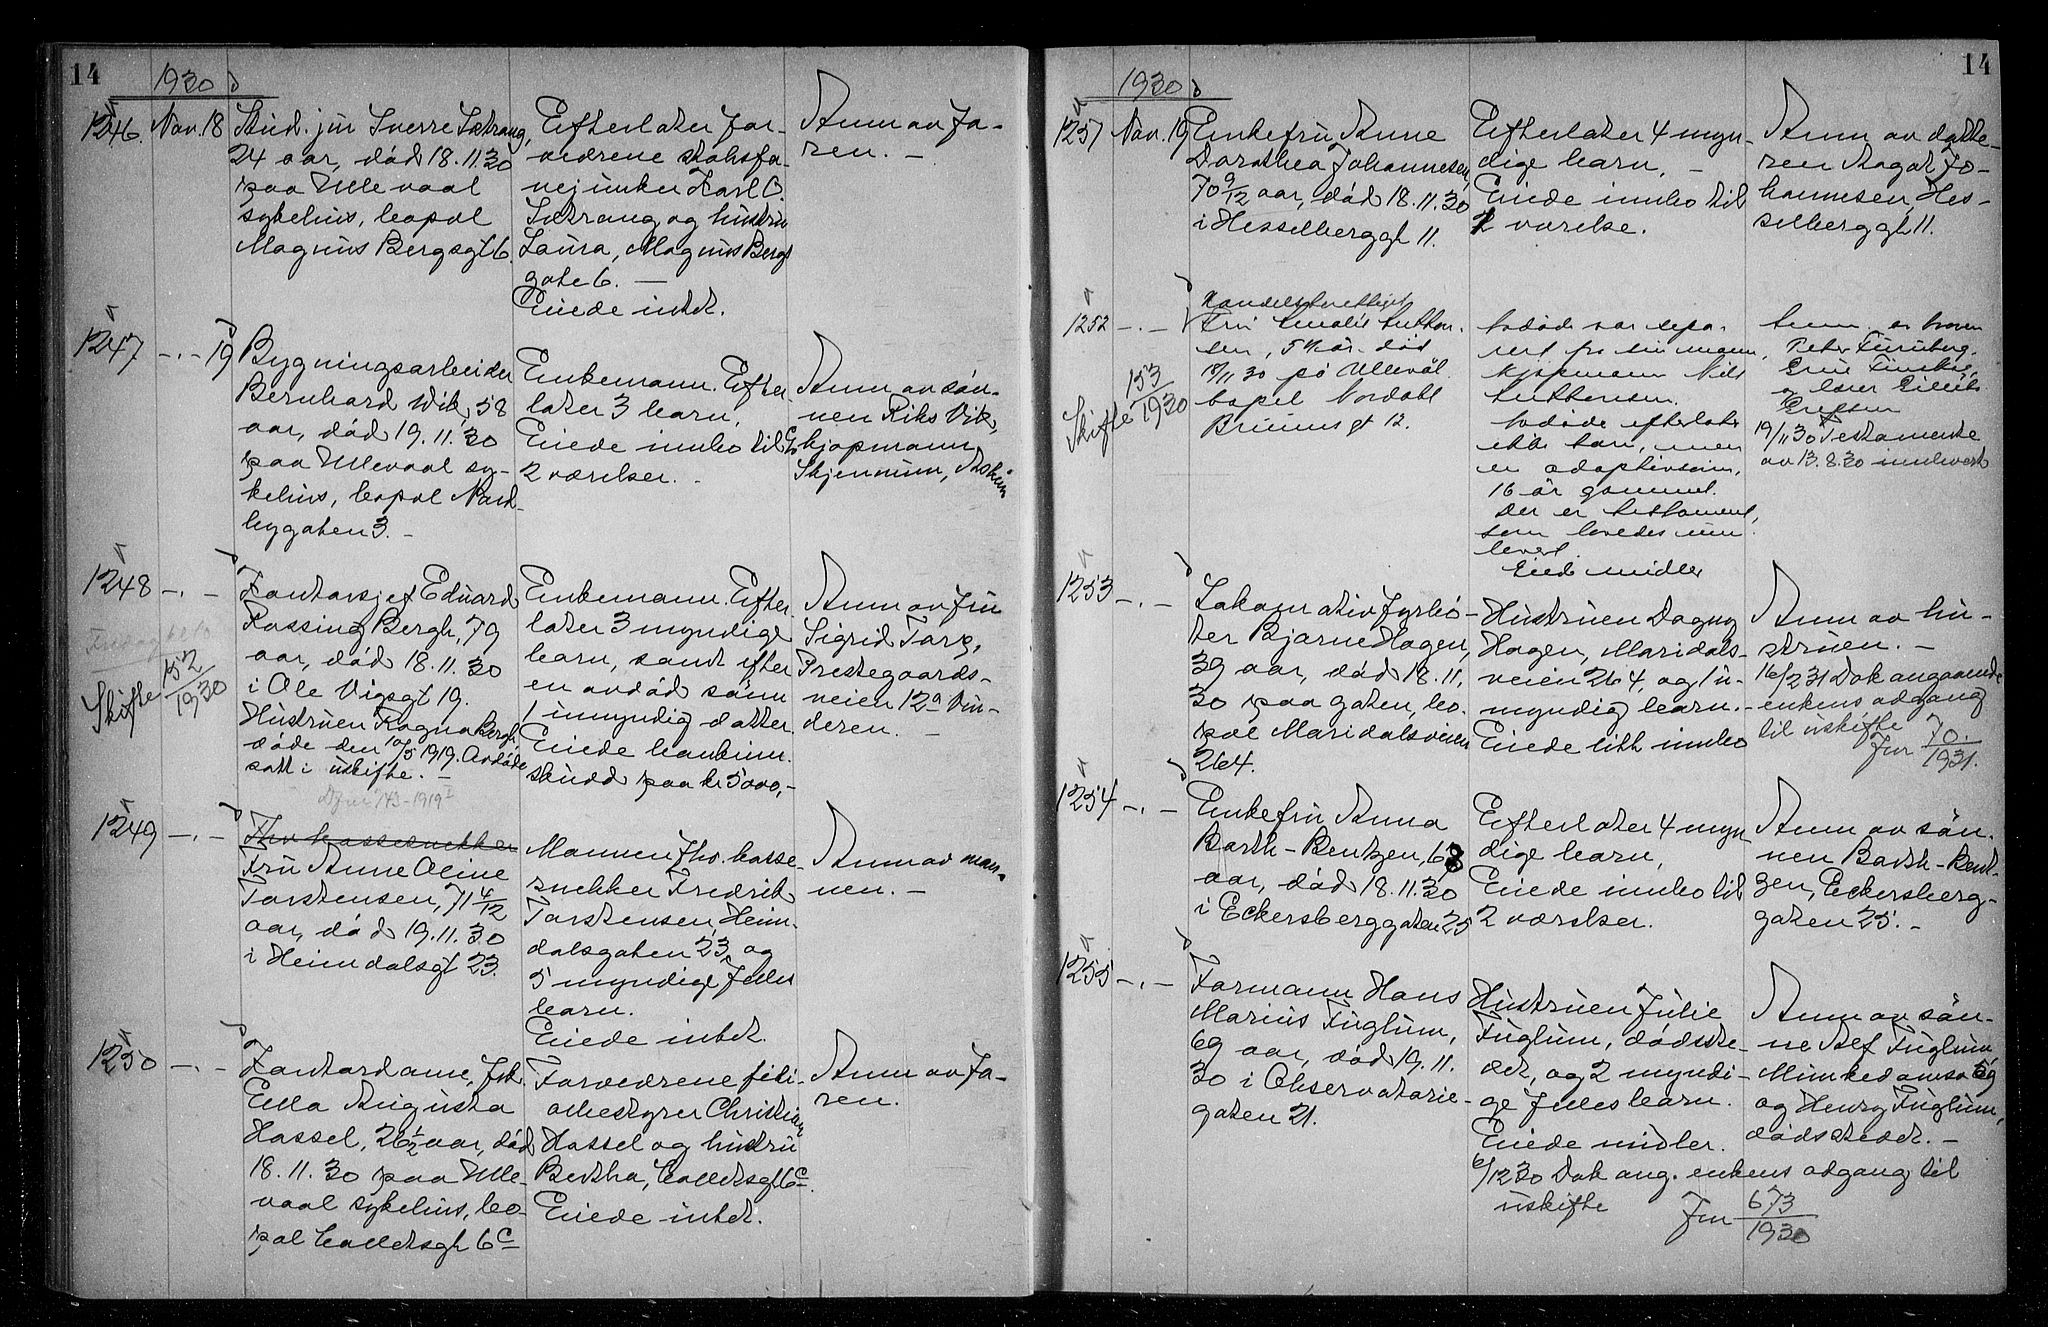 14
1930
1246. Nov. 18
Stud. jur Sverre Sætrang,
24 aar, død 18.11.30
paa Ullevaal
sykehus, bopæl
Magnus Bergsgt 6.
Efterlater for-
ældrene
Karl O.
Sætrang og hustru
Laura, Magnus Bergs
gate 6. —
Eiede intet.
Anm av fa-
ren. —
1247 —.— 19
Bygningsarbeider
Bernhard Wik, 58
aar, død 19.11.30
paa Ullevaal sy-
kehus, bopæl Nord-
bygaten 3. —
Enkemann. Efter-
later 3 barn.
Eiede innbo til
2 værelser. —
Anm av søn-
nen Riks Vik,
kjøpmann,
Skjennum, Askim
1248 —.—
Skifte 152/1930
Kontorsjef Eduard
Rossing Bergh, 79
aar, død 18.11.30
i Ole Vigsgt 19.
Hustruen Ragna Bergh
døde den 10/5 1919. Avdøde
satt i uskifte. —
Djur 143-1919
Enkemann. Efter-
later 3 myndige
barn, samt efter
en avdød sønn
1 umyndig datter
Eiede bankinn-
skudd paa kr 5000,-
Anm av fru
Sigrid Torp,
Prestegaards-
veien 12a Vin-
deren. —
1249 —.—
Fhv kassesnekker
Fru Anne Oline
Torstensen, 71 4/12
aar, død 19.11.30
i Heimdalsgt 23.
Mannen fhv. kasse-
snekker Fredrik
Torstensen, Heim-
dalsgaten 23, og
5 myndige felles
barn.
Eiede intet.
Anm av man-
nen. —
1250 —.—
Kontordame, frk
Ella Augusta
Hassel, 26 1/2 aar, død
18.11.30 paa Ulle-
vaal sykehus, bo-
pæl Colletsgt 6c
Forældrene fili-
albestyrer Christian
Hassel og hustru
Bertha, Colletsgt 6c.
Eiede intet.
Anm av fa-
ren.
14
1930
1251 Nov. 19
Enkefru Anne
Dorothea Johannesen,
70 9/12 aar, død 18.11.30
i Hesselberggt 11.
Efterlater 4 myn-
dige barn. —
Eiede innbo til
2 værelse.
Anm av datte-
ren Aagot Jo-
hannesen, Hes-
selberggt 11.
1252 —.—
Skifte 153/1930
Handelsberettiget
Fru Amalie Anthon-
sen, 5 år. død
18/11 30 på Ullevål.
bopel Nordahl
Bruuns gt 12.
Avdøde var sepa-
rert fra sin mann,
kjøpmann Nils
Anthonsen.
Avdøde efterlater
ikke barn, men
en adoptivsønn,
16 år gammel.
Der er testament,
som lovedes inn
levert.
Eiede midler
Anm av broren
Peter Furuberg,
og lærer
19/11 30 Testamente
av 13.8.30 innlevert
1253 —.—
Lokomotivfyrbø-
ter Bjarne Hagen,
39 aar, død 18.11.
30 paa gaten, bo-
pæl Maridalsveien
264.
Hustruen Dagny
Hagen, Maridals-
veien 264, og 1 u-
myndig barn. —
Eiede litt innbo
Anm av hu-
struen. —
16/2 31 Dok angaaende
enkens adgang
til uskifte
Jnr 70./1931.
1254 —.—
Enkefru Anna
Barth-Bentzen, 68
aar, død 18.11.30
i Eckersberggaten 25
Efterlater 4 myn
dige barn,
Eiede innbo til
2 værelser.
Anm av søn-
nen Barth-Bent-
zen, Eckersberg-
gaten 25. —
1255 —.—
Formann Hans
Marius Fuglum,
69 aar, død 19.11.
30 i Observatorie-
gaten 21.
Hustruen Julie
Fuglum, dødste-
det, og 2 myndi-
ge felles barn.
Eiede midler.
6/12 30 Dok ang. enkens adgang til
uskifte Jnr 673/1930
Anm av søn-
ne Alf Fuglum,
og Henry Fuglum,
dødsstedet. —